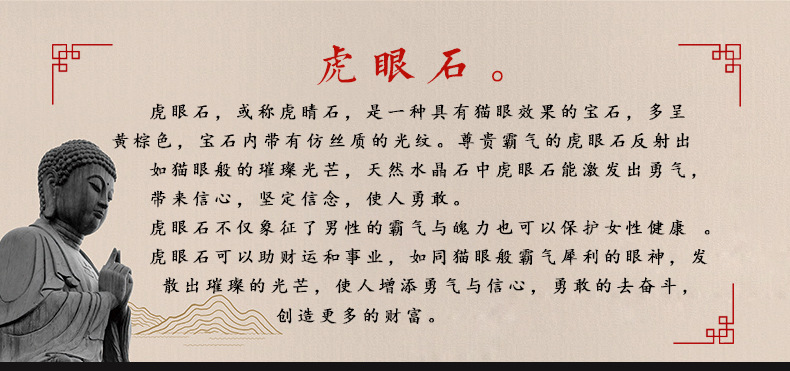 虎眼石。
虎眼石，或称虎睛石，是一种具有猫眼效果的宝石，多呈
黄棕色，宝石内带有仿丝质的光纹。尊贵霸气的虎眼石反射出
如猫眼般的璀璨光芒，天然水晶石中虎眼石能激发出勇气，
带来信心，坚定信念，使人勇敢。
虎眼石不仅象征了男性的霸气与魄力也可以保护女性健康 。
虎眼石可以助财运和事业，如同猫眼般霸气犀利的眼神，发
散出璀璨的光芒，使人增添勇气与信心，勇敢的去奋斗，
创造更多的财富。